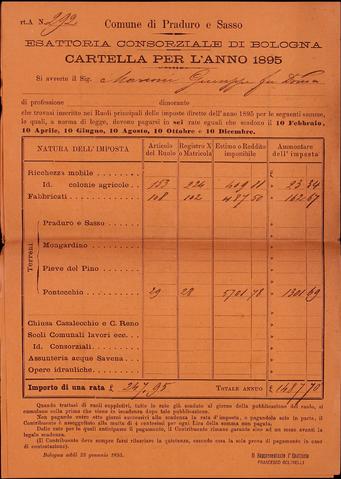 rt.A N. 292
Comune di Praduro e Sasso
ESATTORIA CONSORZIALE DI BOLOGNA
CARTELLA PER L'ANNO 1895
Si avverte il Sig. Giuseppe fu
di professione dimorante
che trovasi inscritto nei Ruoli principali delle imposte dirette dell'anno 1895 per le seguenti somme,
le quali, a norma di legge, devono pagarsi in sei rate eguali che scadono il 10 Febbraio,
10 Aprile, 10 Giugno, 10 Agosto, 10 Ottobre e 10 Dicembre.
NATURA DELL'IMPOSTA Articolo del Ruolo Registro X o Matricola Estimo o Reddito imponibile Ammontare dell'imposta
Ricchezza mobile
Id. colonie agricole 153 224 23 34
Fabbricati 108 102 487 50 162 67
Terreni
Praduro e Sasso
Mongardino
Pieve del Pino
Pontecchio 29 28 5701 78 1301 69
Chiusa Casalecchio e C. Reno
Scoli Comunali lavori ecc.
Id. Consorziali.
Assunteria acque Savena
Opere idrauliche
Importo di una rata £ 247,95 TOTALE ANNUO £ 1487 70
Quando trattasi di ruoli suppletivi, tutte le rate già scadute al giorno della pubblicazione del ruolo, si
cumulano colla prima che viene in iscadenza dopo tale pubblicazione.
Non pagando entro otto giorni successivi alla scadenza la rata d'imposta, o pagandola solo in parte, il
Contribuente è assoggettato alla multa di 4 centesimi per ogni Lira della somma non pagata.
Dalle rate per le quali anticipasse il pagamento, il Contribuente rimane garantito sino ad un mese avanti la
legale scadenza.
(Il Contribuente deve sempre farsi rilasciare la quietanza, essendo essa la sola prova di pagamento in caso
di contestazione).
Bologna addì 25 gennaio 1895.
Il Rappresentante l'Esattore
FRANCESCO